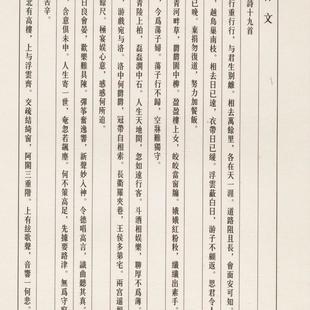 文
詩十九首
行重行行，與君生別離。相去萬餘里，各在天一涯。道路阻且長，會面安可知。
越鳥巢南枝。相去日已遠，衣帶日已緩。浮雲蔽白日，游子不顧返。思君令人
已晚。棄捐勿復道，努力加餐飯。
青河畔草，鬱鬱園中柳。盈盈樓上女，皎皎當窗牖。娥娥紅粉妝，纖纖出素手。
今為蕩子婦。蕩子行不歸，空牀難獨守。
青陵上柏，磊磊澗中石。人生天地間，忽如遠行客。斗酒相娛樂，聊厚不為薄。
游戲宛與洛。洛中何鬱鬱，冠帶自相索。長衢羅夾巷，王侯多第宅。兩宮遙相
餘尺。極宴娛心意，慼慼何所迫。
日良宴會，歡樂難具陳。彈箏奮逸響，新聲妙入神。令德唱高言，識曲聽其真。
含意俱未申。人生寄一世，奄忽若飆塵。何不策高足，先據要路津。無為守窮
苦辛。
北有高樓，上與浮雲齊。交疏結綺窗，阿閣三重階。上有絃歌聲，音響一何悲。